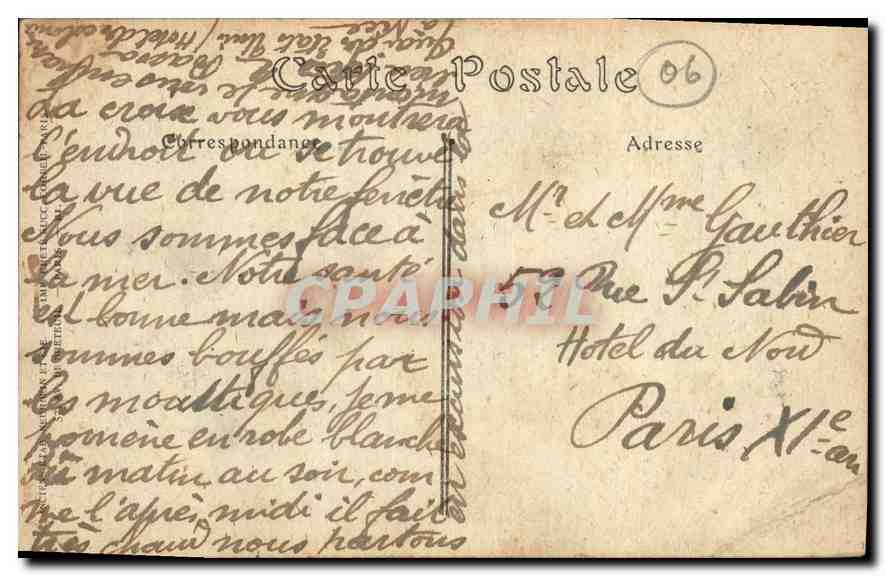 Carte Postale
06
Correspondance
Adresse
La croix vous montrera
l'endroit ou se trouve
la vue de notre fenêtre
Nous sommes face à
la mer. Notre santé
est bonne mais nous
sommes bouffés par
les moustiques, je me
promène en robe blanche
du matin au soir, com
me l'après midi il fait
très chaud nous partons
en excursion dans la
montagne je vis
Quai des Etats Unis (Hotel
à Nice
Mr et Mme Gauthier
58 Rue St Sabin
Hotel du Nord
Paris XIe
arr
CPARHIL